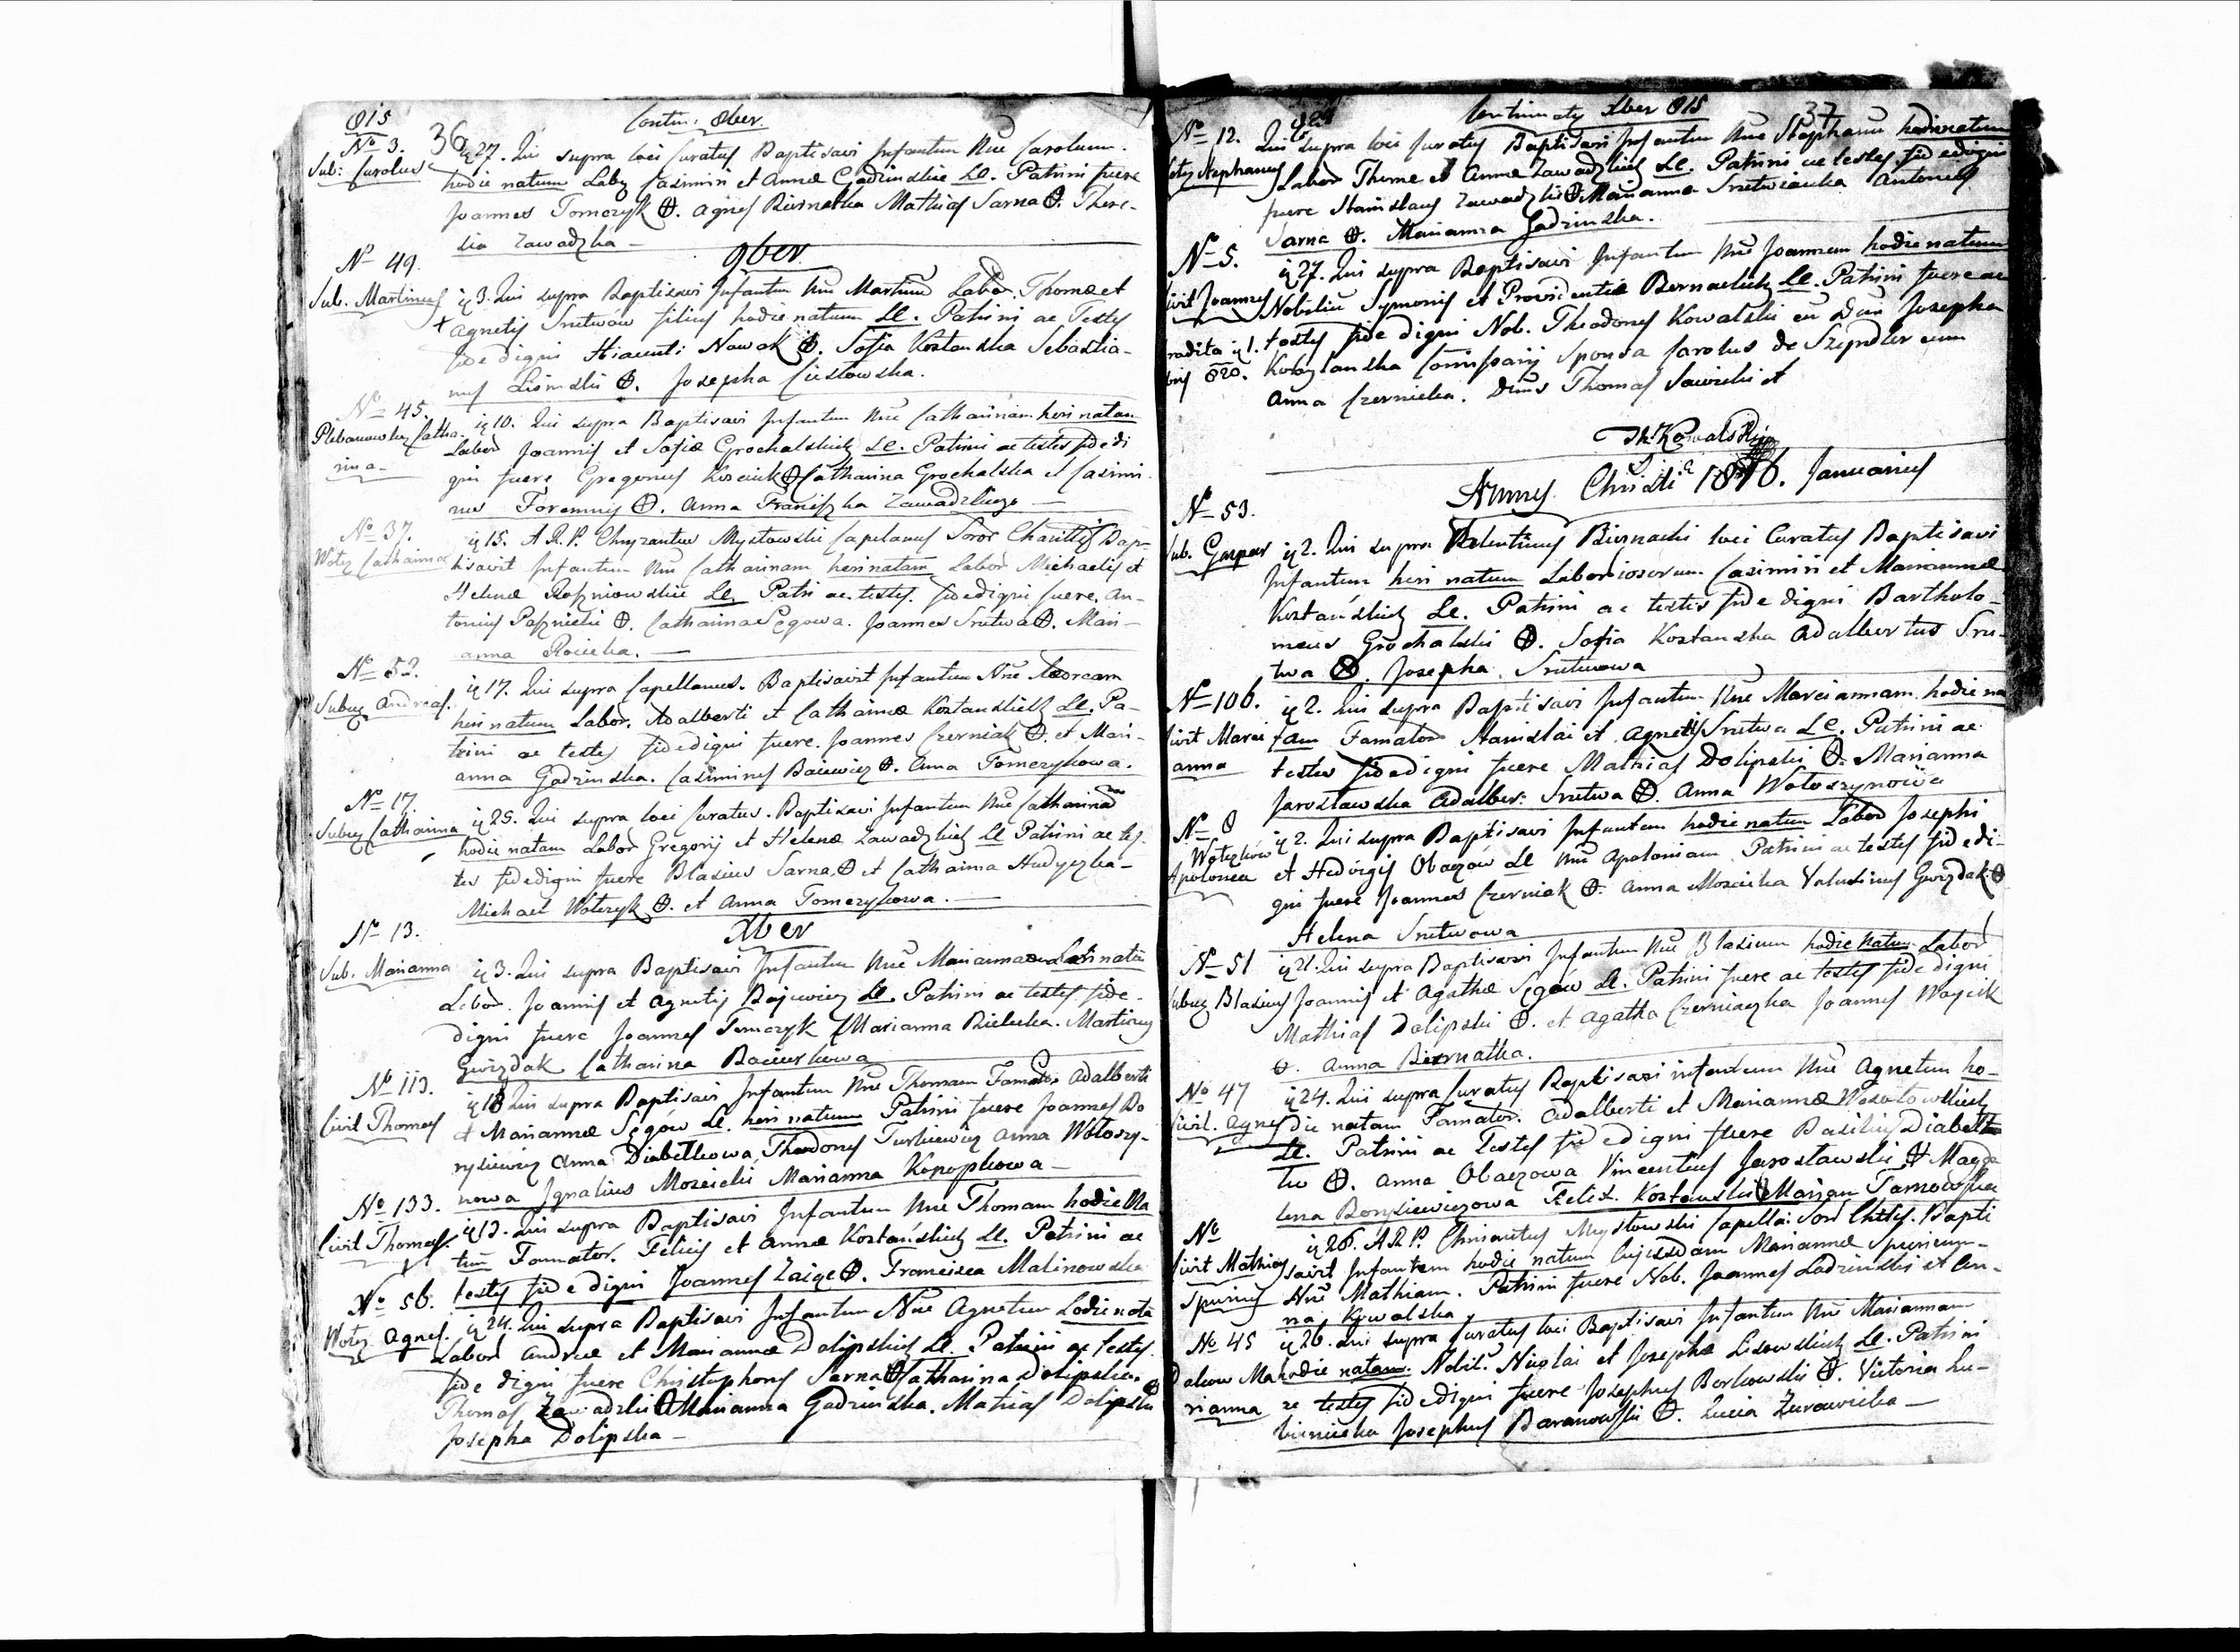 815
36
Contin: 8ber.
No 3.
Sub: Carolus
27. Qui supra loci Curatus Baptisavi Infantem Nne Carolum
hodie natum Labo Casimiri et Annæ Godzinskie LC. Patrini fuere
Joannes Tomczyk ⊕. Agnes Biernatka Mathias Sarna ⊕. There-
sia Zawadzka
9ber
No 49.
Sub. Martinus
3. Qui supra Baptisavi Infantem Nne Martinu Labor. Thomæ et
Agnetis Srutwow filius hodie natum LC. Patrini ac Testes
fide digni Hiacenti Nowak ⊕. Sofia Kostanska Sebastia-
nus Lisinski ⊕. Josepha Cieslowska.
No 45.
Plebanowka Catha-
rina
10. Qui supra Baptisavi Infantem Nne Catharinam heri natam
Labor Joannis et Sofiæ Grochalskich LC. Patrini ac testes fide di
gni fuere Gregorius Kosciuk ⊕ Catharina Grochalska et Casimi-
rus Foremny ⊕. Anna Franciszka Zawadzkiego
No 37.
Wolez Catharina
15. A. R. P. Chryzantus Mystowski Capelanus Soror Charittis Bap-
tisavit Infantem Nne Catharinam heri natam Labor Michaelis et
Helenæ LC. Patri ac testes. fide digni fuere. An-
tonius ⊕. Catharina Segowa. Joannes Srutwa ⊕. Mari-
anna
No 52.
Subuz Andreas.
17. Qui supra Capellanus. Baptisavit Infantem Nne Andream
heri natum Labor. Adalberti et Catharinæ Kostanskich LC. Pa-
trini ac testes fide digni fuere. Joannes Czerniak ⊕. et Mari-
anna Godzinska. Casimirus Baiewicz ⊕. Anna Tomczykowa.
No 17.
Subuz Catharina
25. Qui supra loci Curatus. Baptisavi Infantem Nne Catharina
hodie natam Labor Gregorij et Helenæ Zawadzkich LC Patrini ac tes-
tes fide digni fuere Blasius Sarna ⊕ et Catharina Hudyczka
Michael Wolczyk ⊕. et Anna Tomczykowa.
Xber
No 13.
Sub. Marianna
3. Qui supra Baptisavi Infantem Nne Mariannam heri natam
Labor. Joannis et Agnetis Bajewicz LC. Patrini ac testes fide-
digni fuere Joannes Tomczyk Marianna Bielecka. Martinus
Gwizdak Catharina Baiewskowa
No 113.
Civit Thomas
18 Qui supra Baptisavi Infantem Nne Thomam Famato Adalberti
et Mariannæ Segów LC. heri natum Patrini fuere Joannes Bo
rysiewicz Anna Diabelkowa, Theodorus Turkiewicz Anna Wołoszy-
nowa Ignatius Moscicki Marianna Konopkowa
No 133.
Civit Thomas.
13. Qui supra Baptisavi Infantem Nne Thomam hodie Na
tum Famator. Felicis et Annæ Kostańskich LC. Patrini ac
testes fide digni Joannes Zaige ⊕. Francisca Malinowska
No 56.
Wolez Agnes.
24. Qui supra Baptisavi Infantem Nne Agnetem hodie nata
Labor Andreæ et Mariannæ Dolipskich LC. Patrini ac testes
fide digni fuere Christophorus Sarna ⊕ Catharina Dolipska.
Thomas Zawadzki ⊕ Marianna Godzinska. Mathias Dolipski ⊕
Josepha Dolipska
Continuatus Xber 815
37
No 12.
Stephanus
Qui supra loci Curatus Baptisavi Infantem Nne Stephanu hodie natum
Labor Thomæ et Annæ Zawadzkich LC. Patrini ac testes fide digni
fuere Stanislaus Zawadzki ⊕ Marianna Srutwianka Antonius
Sarna ⊕. Marianna Godzinska.
No 5.
Civit Joannes
27. Qui supra Baptisavi Infantem Nne Joannem hodie natum
Nobiliu Symonis et Providentiæ Bernackich LC. Patrini fuere ac
testes fide digni Nob. Theodorus Kowalski cu Dna Josepha
820. Sponsa Carolus de Szyndler cum
Anna Czernicka. Dnus Thomas Sawicki et
Th. Kowalski
Annus Christi 1816. Januarius
No 53.
Sub. Gasper
2. Qui supra Valentinus Biernacki loci Curatus Baptisavi
Infantem heri natum Laboriosorum Casimiri et Mariannæ
Kostańskich LC. Patrini ac testes fide digni Bartholo-
meus Grochalski ⊕. Sofia Kostanska Adalbertus Sru-
twa ⊕. Josepha Srutwowa
No 106.
Civit Mari
anna
2. Qui supra Baptisavi Infantem Nne Mariannam hodie na
tam Famator Stanislai et Agnetis Srutwa LC. Patrini ac
testes fide digni fuere Mathias Dolipski ⊕. Marianna
Jarosławska Adalber: Srutwa ⊕. Anna Wołoszynowa
No 8
Wolczków
Apolonia
2. Qui supra Baptisavi Infantem hodie natam Labor Josephi
et Hedvigis Obaczów LC Nne Apoloniam Patrini ac testes fide di-
gni fuere Joannes Czerniak ⊕. Anna Moscicka Valentinus Gwizdak ⊕
Helena Srutwowa
No 51
Subuz Blasius
21. Qui supra Baptisavi Infantem Nne Blasium hodie natum Labor
Joannis et Agathæ Segów LC. Patrini fuere ac testes fide digni
Mathias Dolipski ⊕. et Agatha Czerniaczka Joannes Woycik
⊕. Anna Biernatka.
No 47
Civit. Agnes
24. Qui supra Curatus Baptisavi infantem Nne Agnetem ho-
die natam Famator. Adalberti et Mariannæ Wesołowskich
LC. Patrini ac Testes fide digni fuere Basilius
⊕. Anna Obaczowa Vincentius Jarosławski ⊕ Magda
lena Borysiewiczowa Felix. Kostanski ⊕ Marjan Tarnowska
No
Civit Mathias
Spurius
26. A R P. Chrisantus Mystowski Capella: Soro Chttis. Bapti
savit Infantem hodie natum cujusdam Mariannæ
Nne Mathiam. Patrini fuere Nob. Joannes Ladzinski et An-
na Kowalska
No 45
Daleow Ma
rianna
26. Qui supra Curatus loci Baptisavi Infantem Nne Mariannam
hodie natam. Nobil: Nicolai et Josephæ Lisowskich LC. Patrini
ac testes fide digni fuere Josephus Borkowski ⊕. Victoria Lu-
bieniecka Josephus Baranowski ⊕. Lucia Zurawicka